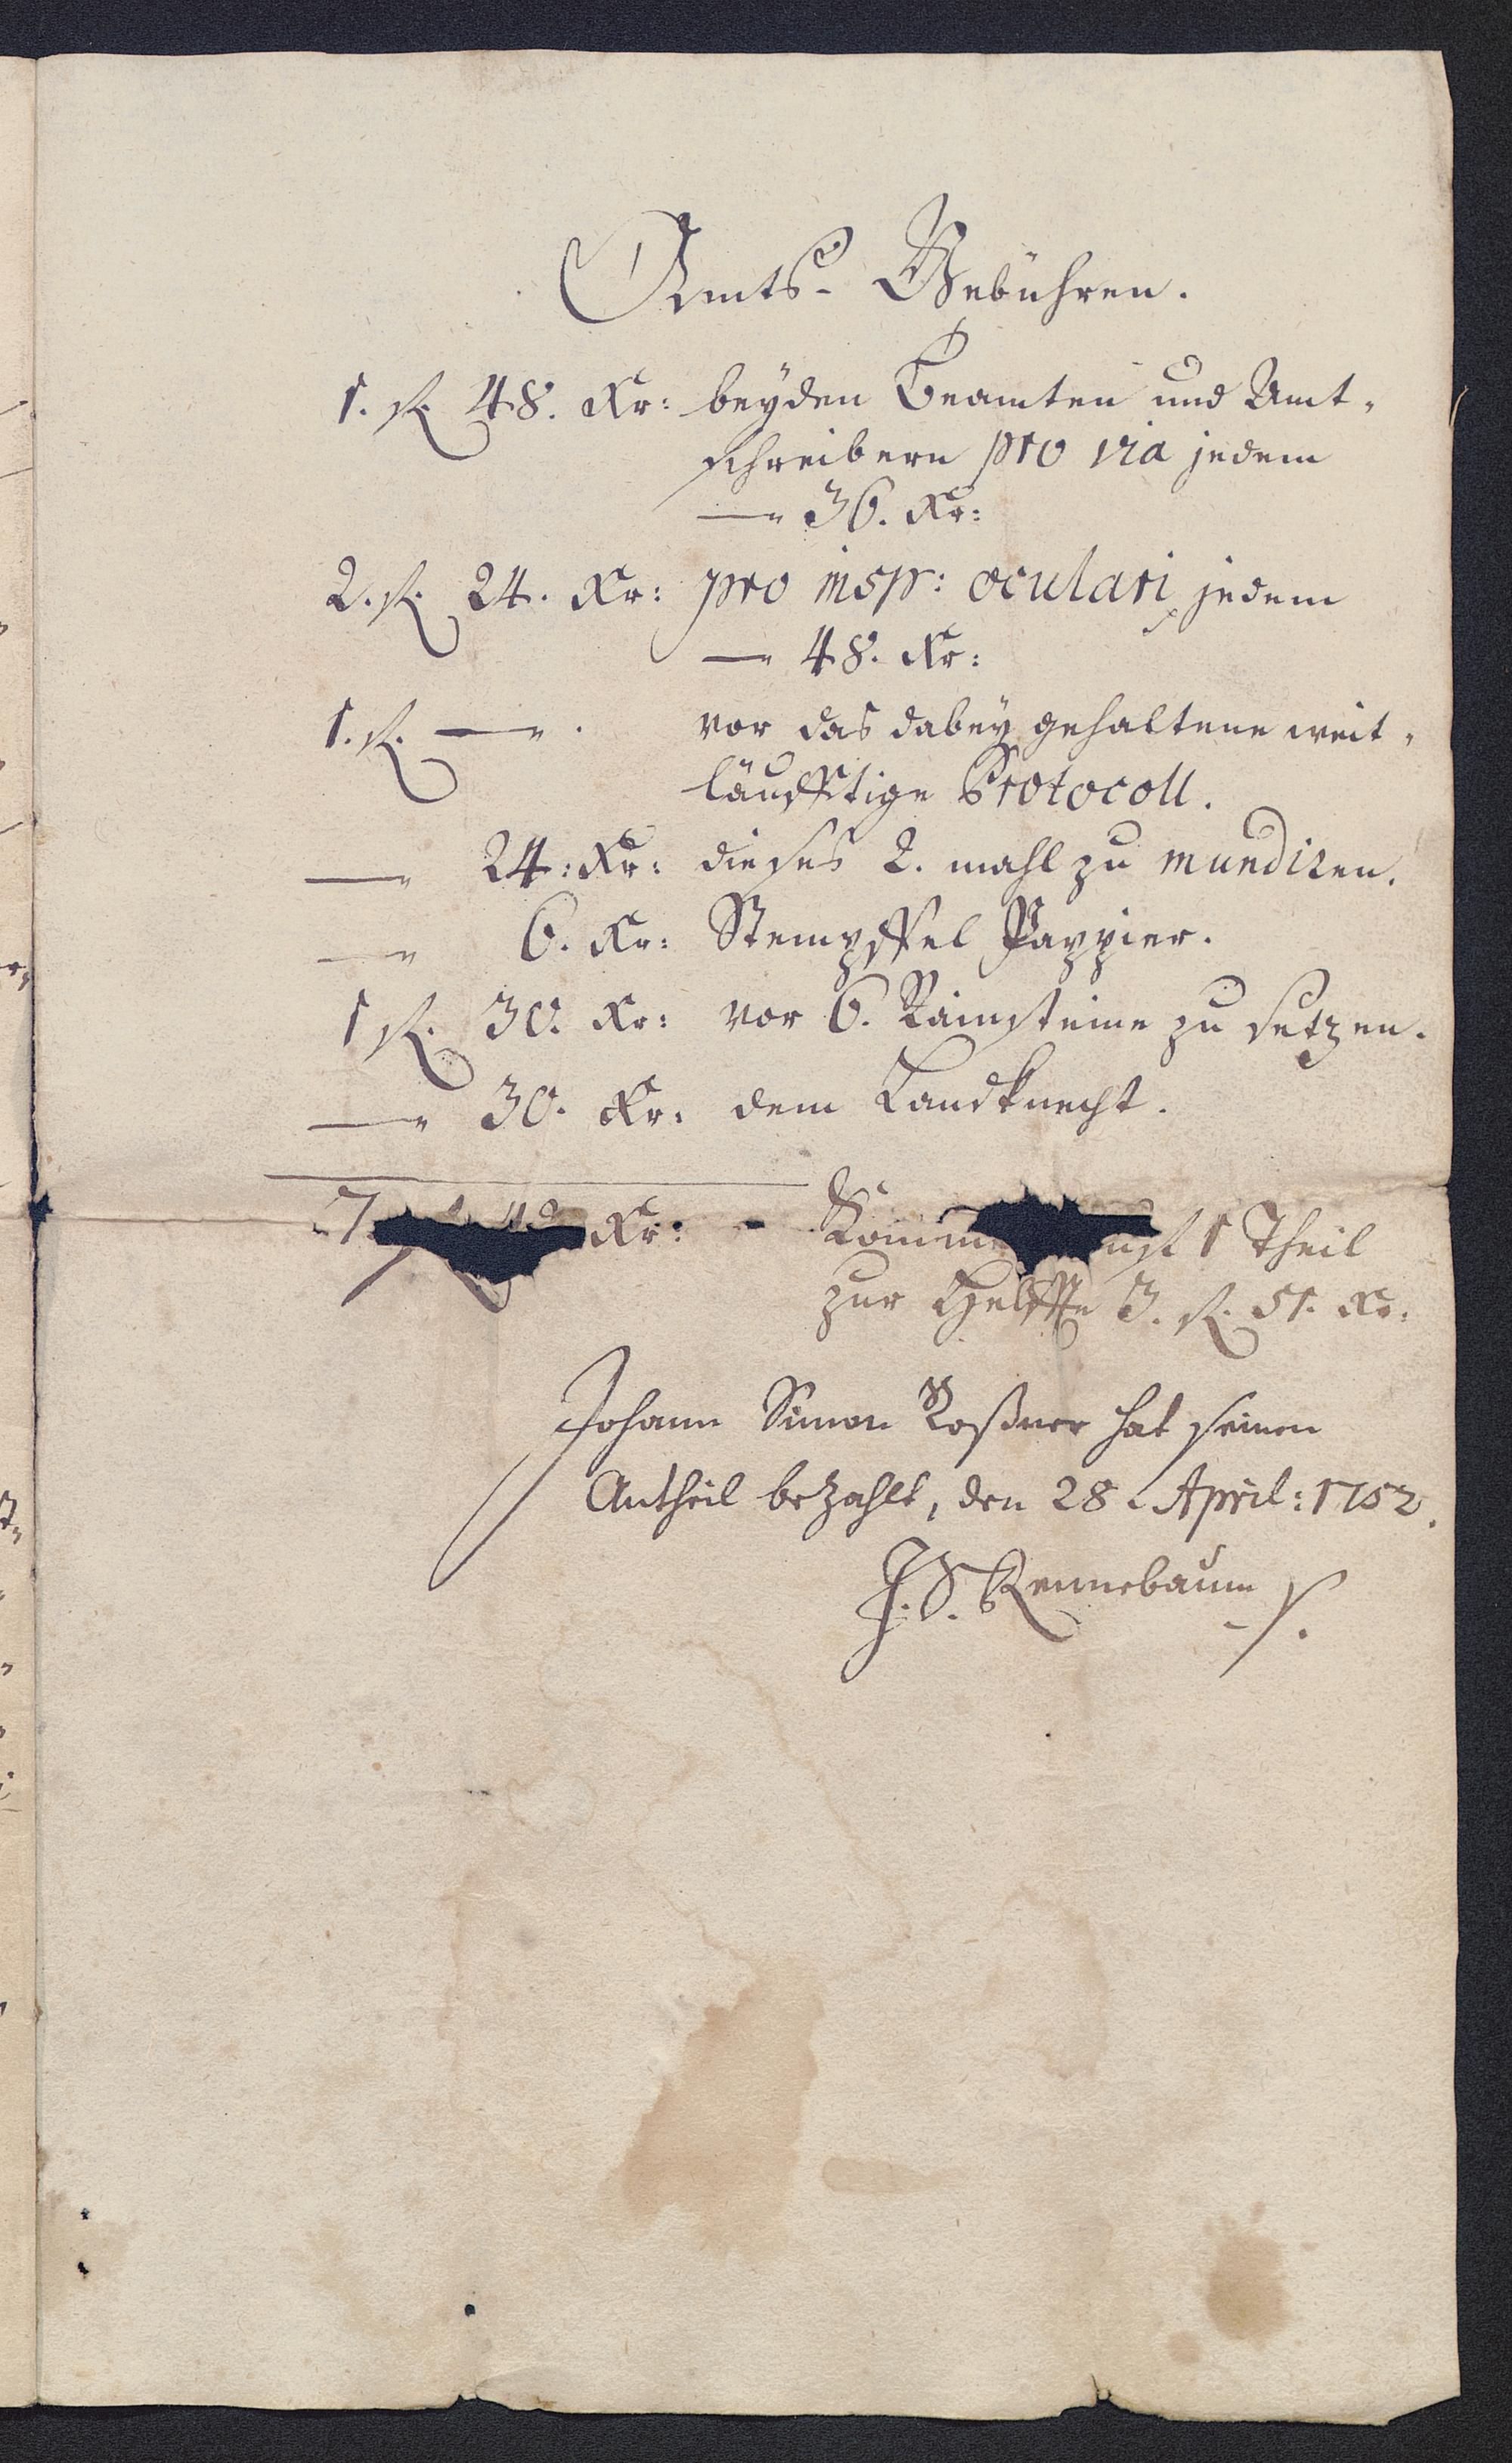 Amts- Gebühren.
1. fl. 48. Kr: beyden Beamten und Amt-
schreibern pro via jedem
— 36. Kr:
2. fl. 24. Kr: pro insp: oculari jedem
— 48. Kr:
1. fl. — . vor das dabey gehaltene weit-
läufftige Protocoll.
— 24: Kr: dieses 2. mahl zu mundiren.
— 6. Kr: Stempffel Pappier.
1 fl. 30. Kr: vor 6. Rainsteine zu setzen.
— 30. Kr: dem Landknecht.
7. 42 Kr: - Komm 1 Theil
zur Helffte 3. fl. 51. Kr:
Johann Simon Roßner hat seinen
Antheil bezahlt, den 28 April: 1752.
J. S. Rennebaum